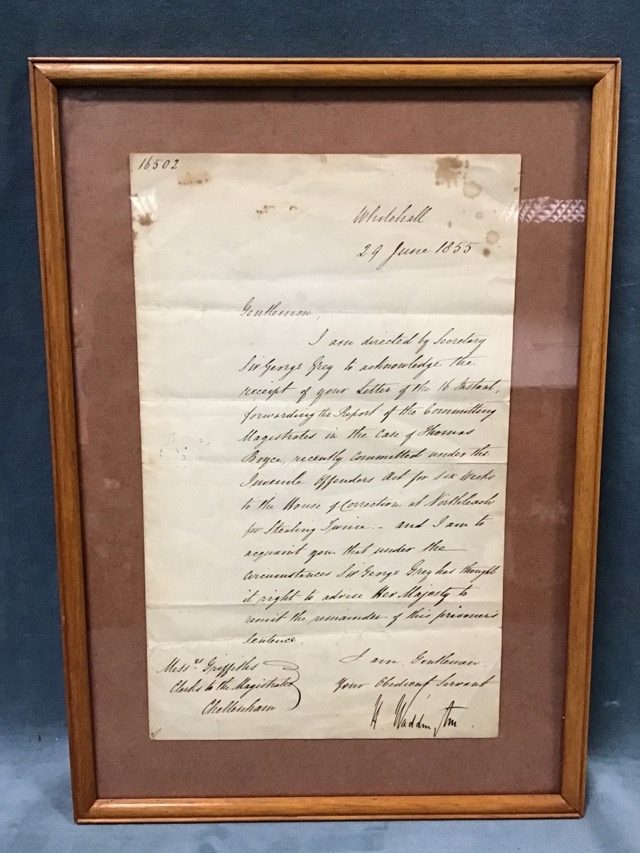 16502
Whitehall
29 June 1855
Gentlemen,
I am directed by Secretary
Sir George Grey to acknowledge the
receipt of your Letter of the 16 Instant,
forwarding the Report of the Committing
Magistrates in the Case of Thomas
Boyce, recently Committed under the
Juvenile Offenders Act for Six Weeks
to the House of Correction at Northleach
for Stealing Twine – and I am to
acquaint you that under the
Circumstances Sir George Grey has thought
it right to advise Her Majesty to
remit the remainder of this prisoner's
Sentence.
I am, Gentlemen,
Your Obedient Servant
H Waddington.
Messrs Griffiths
Clerks to the Magistrates
Cheltenham